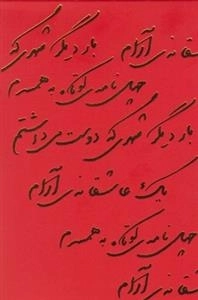 شقانه‌ی آرام بار دیگر شهری که
چهل نامه‌ی کوتاه به همسرم
بار دیگر شهری که دوست می‌داشتم
یک عاشقانه‌ی آرام
چهل نامه‌ی کوتاه به همسرم
شقانه‌ی آرام